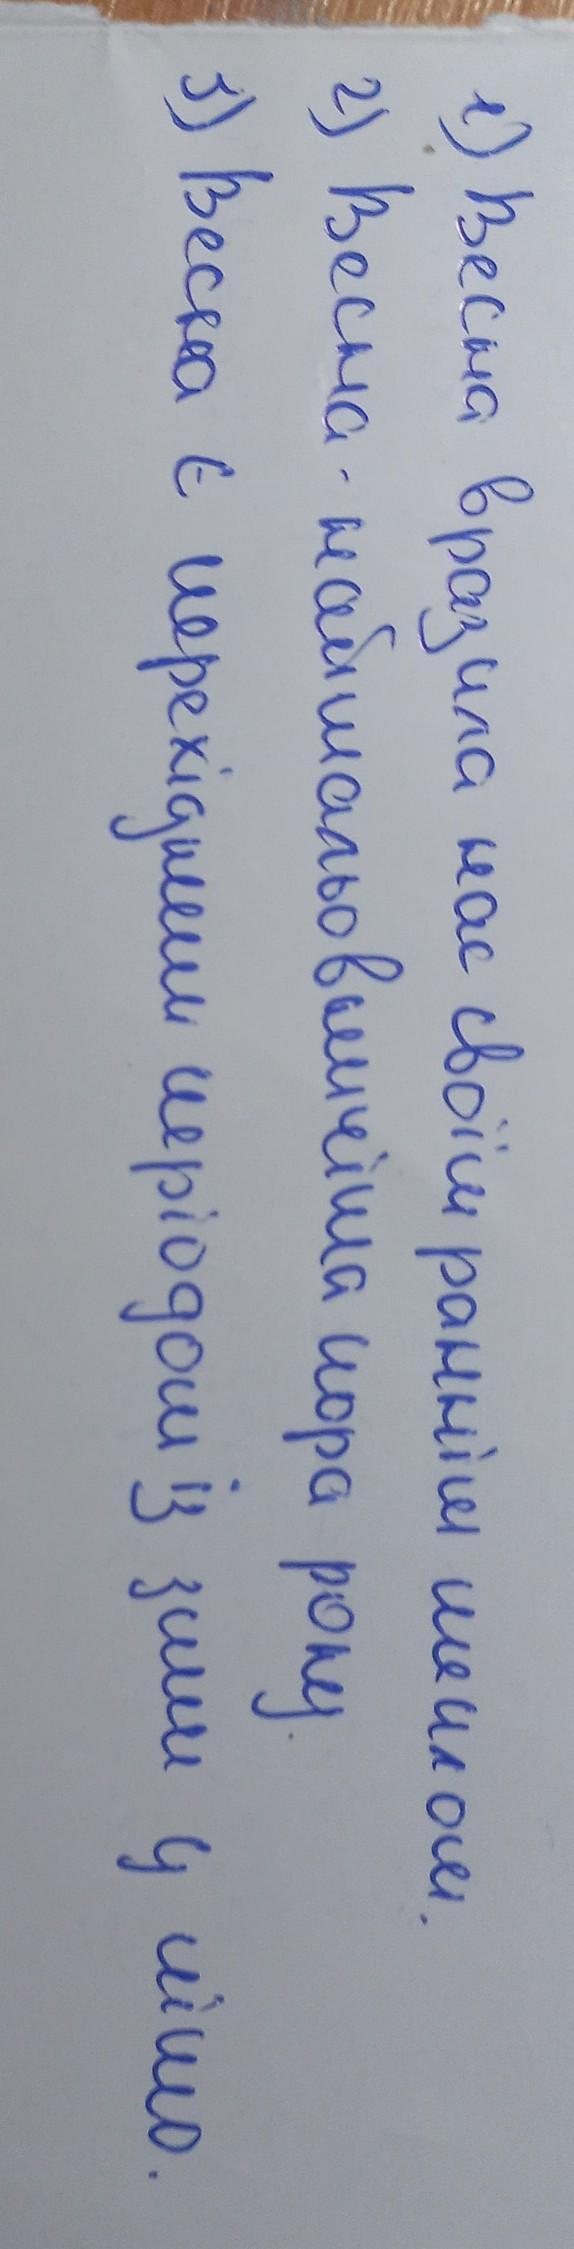 1) Весна вразила нас своїм раннім теплом.
2) Весна - наймальовничіша пора року.
3) Весна є перехідним періодом із зими у літо.